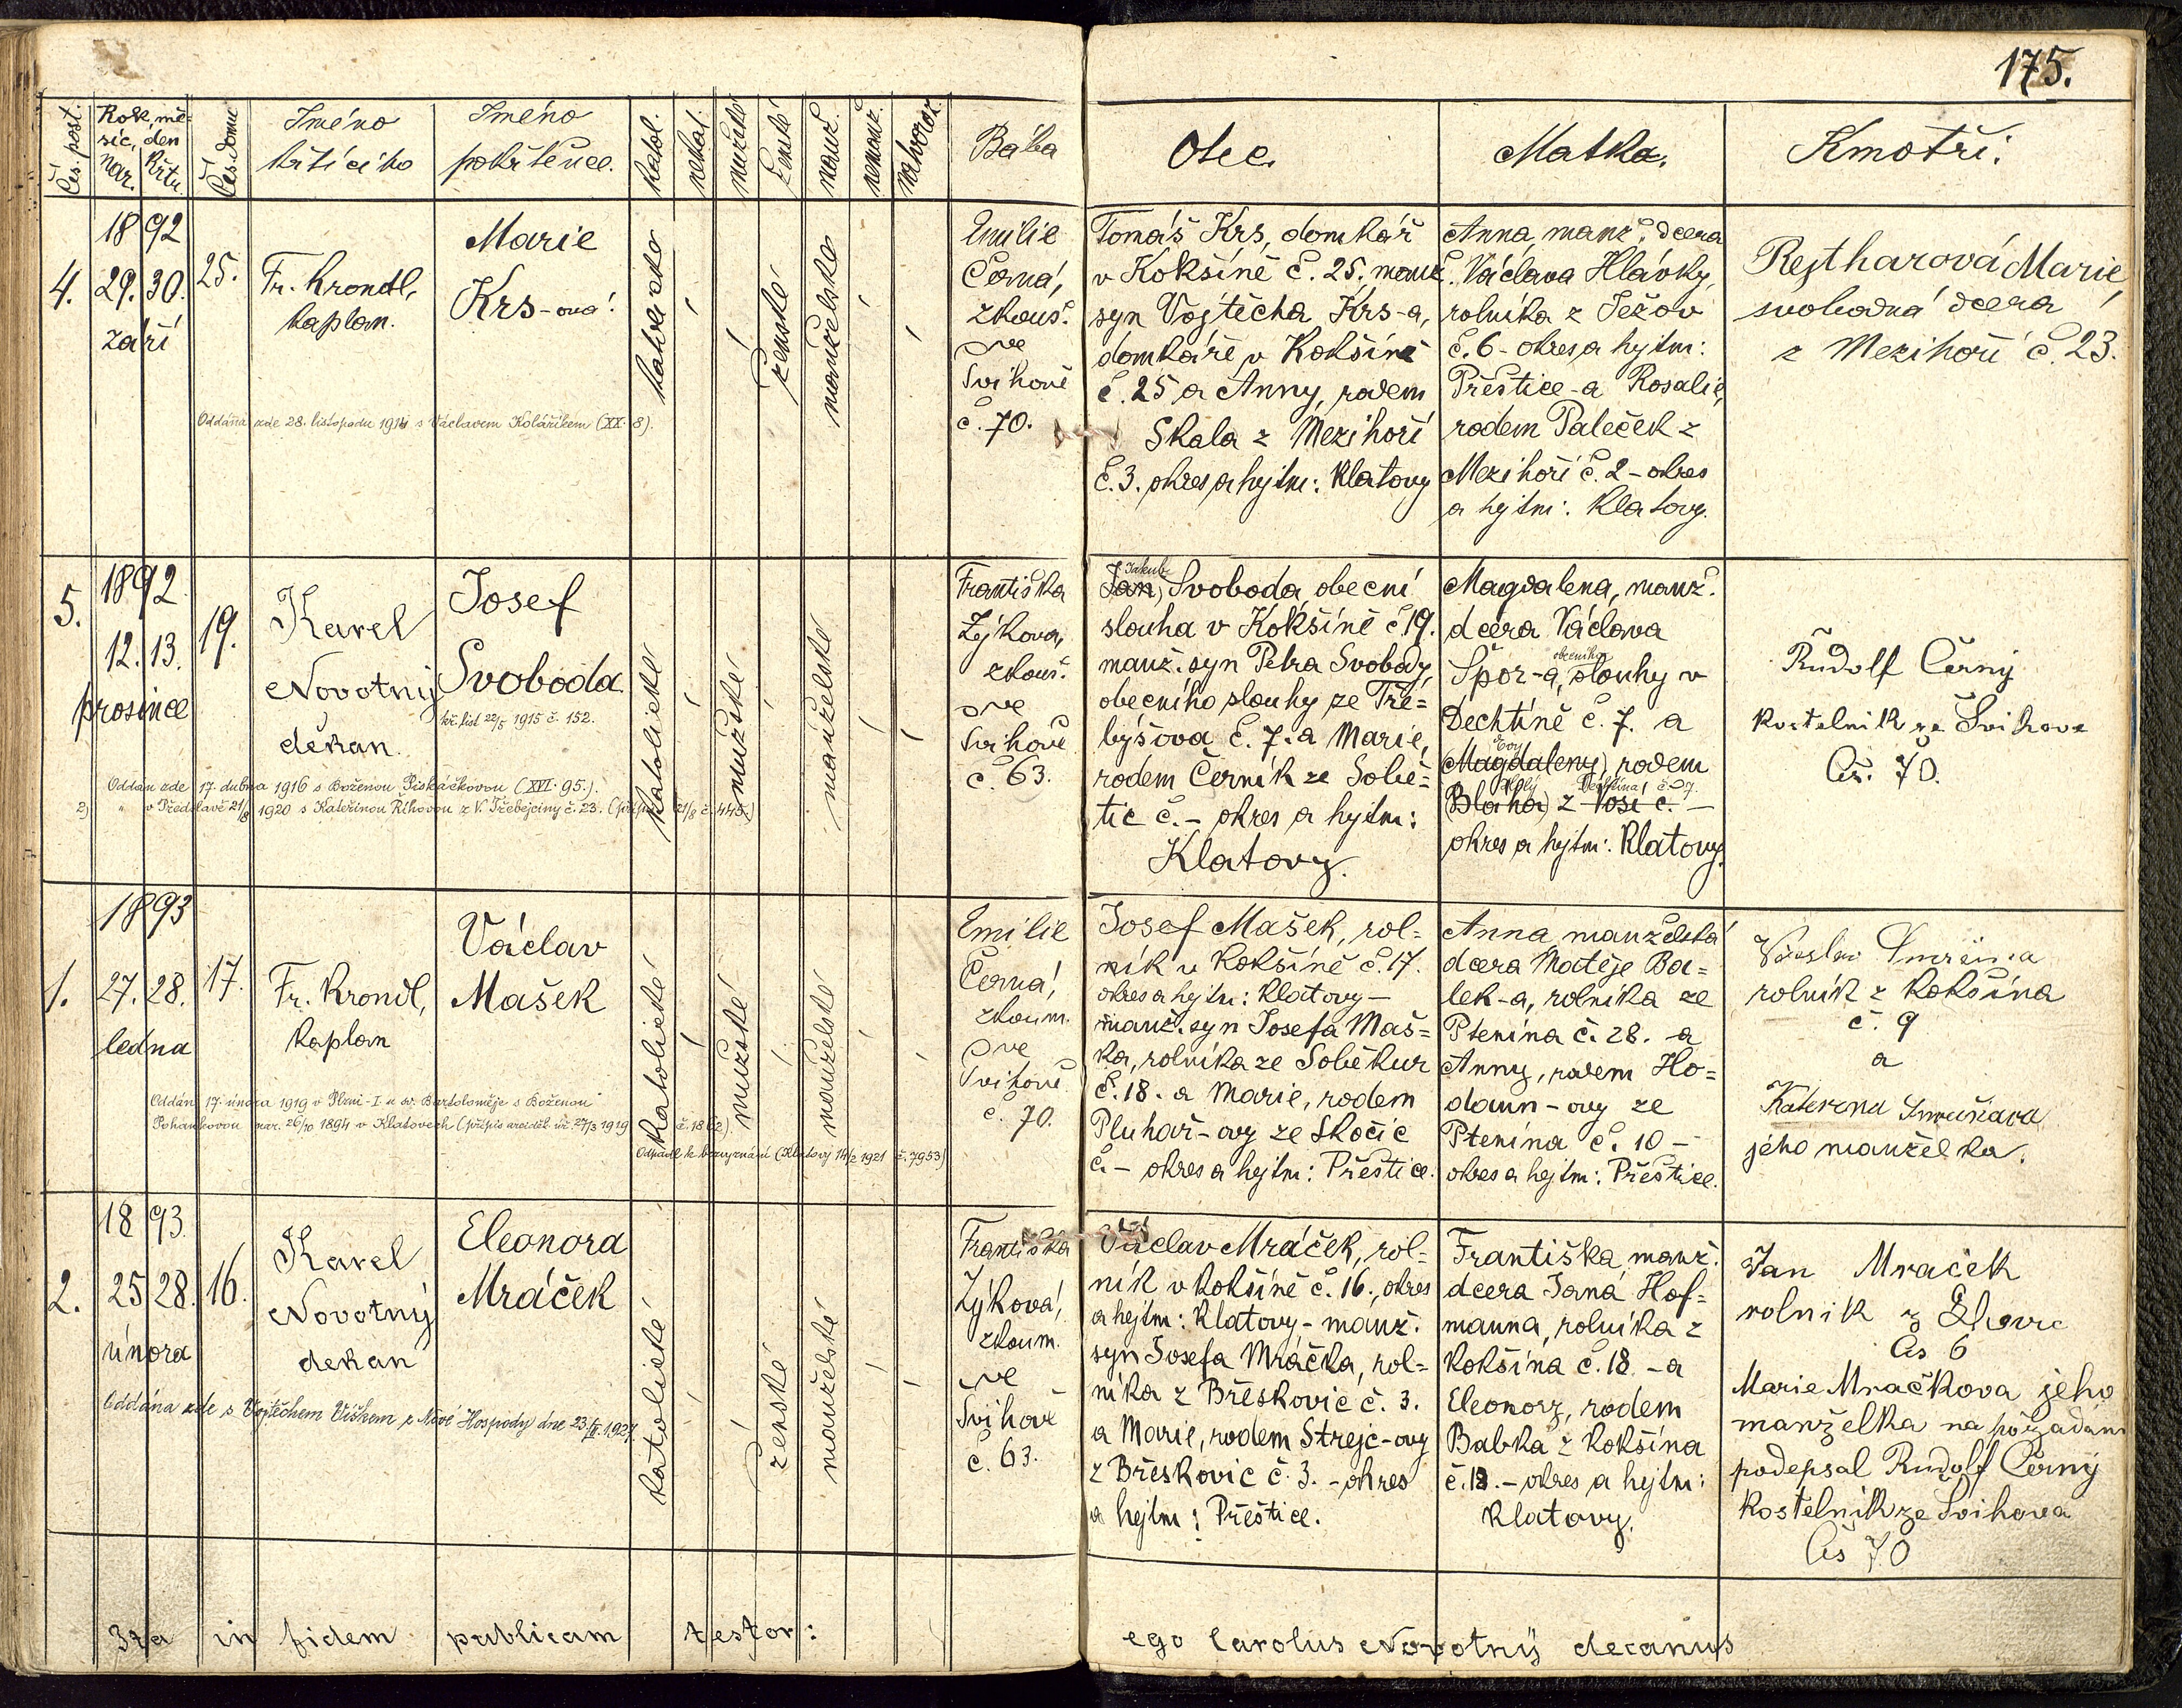 175.
Čís. post.
Rok, mě=
síc, den
nar. | křtu.
Čís. domu
Jméno
křtícího
Jméno
pokřtěnce.
katol.
nekat.
mužské
ženské
manž.
nemanž.
Bába
Otec.
Matka.
Kmotři:
4.
1892
29. 30.
září
25.
Fr. Krondl,
kaplan.
Marie
Krs-ová.
katolické
ženské
manželské
Emilie
Černá,
zkouš.
ve
Švihově
č. 70.
Tomáš Krs, domkář
v Kokšíně č. 25. manž.
syn Vojtěcha Krs-a,
domkáře v Kokšíně
č. 25 a Anny, rodem
Skala z Mezihoří
č. 3. okres a hejtm: Klatovy
Anna, manž. dcera
Václava Hlávky,
rolníka z Ježov
č. 6 - okres a hejtm:
Přeštice - a Rosalie,
rodem Paleček z
Mezihoří č. 2 - okres
a hejtm: Klatovy.
Rejtharová Marie,
svobodná dcera
z Mezihoří č. 23.
Oddána zde 28. listopadu s Václavem Kolaříkem (XX. 8).
5.
1892
12. 13.
prosince
19.
Karel
Novotný
děkan.
Josef
Svoboda
kř. list 22/5 1915 č. 152.
katolické
mužské
manželské
Františka
Zýkova,
zkouš.
ve
Švihově
č. 63.
Jakub
Jan, Svoboda, obecní
slouha v Kokšíně č. 19.
manž. syn Petra Svobody,
obecního slouhy ze Tře=
býšova č. 7. a Marie,
rodem Černík ze Sobě=
tic č. - okres a hejtm:
Klatovy.
Magdalena, manž.
dcera Václava
obecního
Špor-a, slouhy v
Dechtíně č. 7. a
Evy
(Magdaleny) rodem
Dechtína č. 7.
(Bláha) z Vosí č. -
okres a hejtm: Klatovy.
Rudolf Černý
kostelnik ze Švihova
Čís. 70.
Oddán zde 17. dubna 1916 s Boženou Piskáčkovou (XVI. 95.).
2) " v Předslavě 21/8 1920 s Kateřinou Říhovou z V. Třebejčiny č. 23. 21/8 č. 445.)
1.
1893
27. 28.
ledna
17.
Fr. Krondl,
kaplan
Václav
Mašek
katolické
mužské
manželské
Emilie
Černá,
zkoum.
ve
Švihově
č. 70.
Josef Mašek, rol-
ník v Kokšíně č. 17.
okres a hejtm: Klatovy -
manž. syn Josefa Maš=
ka, rolníka ze Soběkur
č. 18. a Marie, rodem
Pluhař-ovy ze Skočic
č. - okres a hejtm: Přeštice.
Anna, manželská
dcera Matěje Ba=
lek-a, rolníka ze
Ptenína č. 28. - a
Anny, rodem Ho=
daun-ovy ze
Ptenína č. 10 -
okres a hejtm: Přeštice.
rolník z Kokšína
č. 9
a
jého manželka.
Oddán 17. února 1919 v Plzni - I u sv. Bartoloměje s Boženou
Pohankovou nar. 26/10 1894 v Klatovech 27/3 1919 č. 1862).
Odpadl k bezvyznání (Klatovy 14/2 1921 č. 7953)
2.
1893.
25 28.
února
16.
Karel
Novotný
děkan
Eleonora
Mráček
katolické
ženské
manželské
Františka
Zýková,
zkoum.
ve
Švihově
č. 63.
Václav Mráček, rol-
ník v Kokšíně č. 16., okres
a hejtm: Klatovy - manž.
syn Josefa Mráčka, rol-
níka z Břeskovic č. 3.
a Marie, rodem Strejc-ovy
z Břeskovic č. 3. - okres
a hejtm: Přeštice.
Františka, manž.
dcera Jana Hof-
manna, rolníka z
Kokšína č. 18 - a
Eleonory, rodem
Babka z Kokšína
č. 18. - okres a hejtm:
Klatovy.
Jan Mraček
rolnik z
čis 6
Marie Mračkova jeho
manželka na požadání
podepsal Rudolf Černý
kostelník ze Švihova
Čis 70
Oddána zde s Vojtěchem Víškem z Nové Hospody dne 23./II. 1927.
Ita in fidem publicam testor:
ego Carolus Novotný decanus